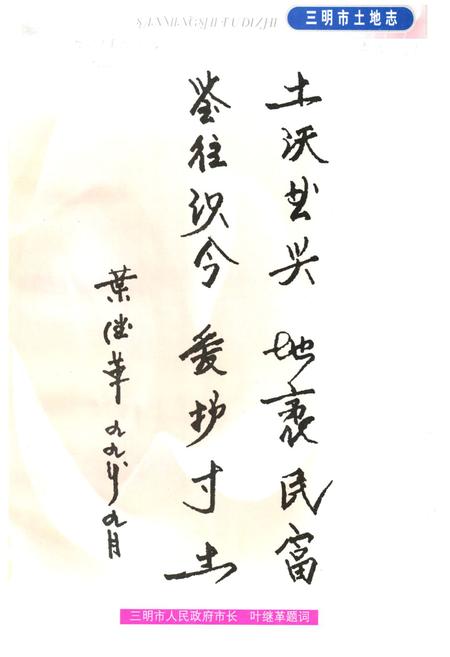 SANMINGSHI TUDIZHI
三明市土地志
土沃世兴 地袤民富
鉴往识今 爱护寸土
葉继革 九九年九月
三明市人民政府市长 叶继革题词